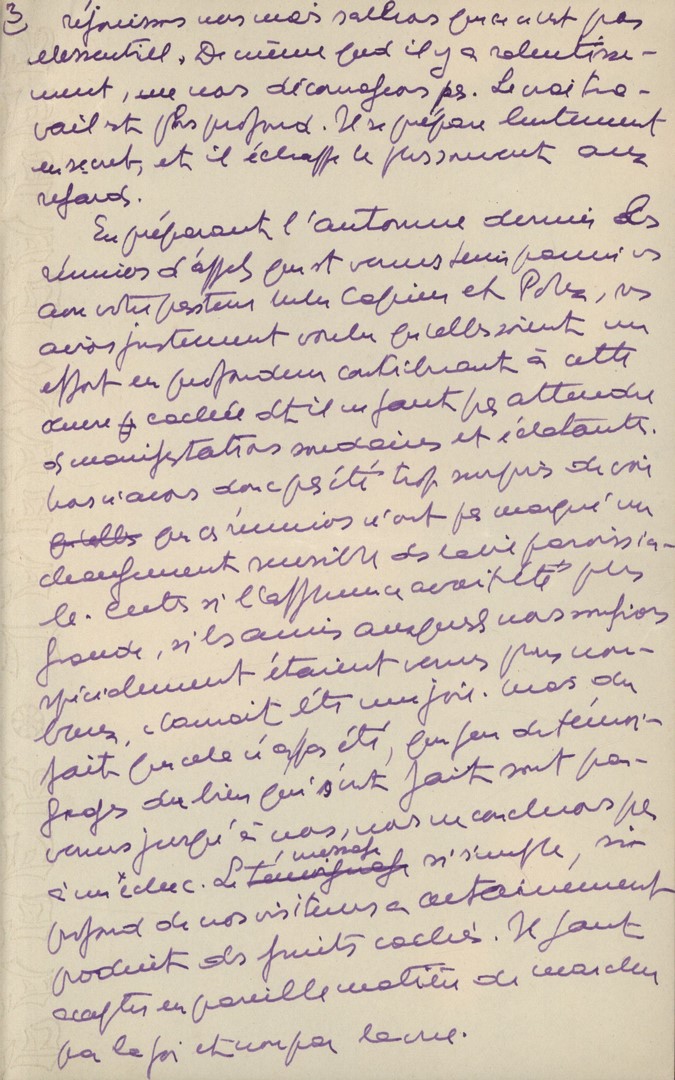 3
réjouissons nous mais sachons que ce n'est pas
l'essentiel. De même quand il y a ralentisse-
ment, ne nous décourageons pas. Le vrai tra-
vail est plus profond. Il se prépare lentement
en secret, et il échappe le plus souvent aux
regards.
En préparant l'automne dernier les
réunions d'appel qu'est venu tenir parmi vs
avec votre pasteur et, vs
avions justement voulu qu'elles soient un
effort en profondeur contribuant à cette
œuvre cachée dt il ne faut pas attendre
de manifestations soudaines et éclatantes.
Nous n'avons donc pas été trop surpris de voir
qu'elles que ces réunions n'ont pas marqué un
changement sensible de la vie paroissia-
le. Certes si l'affluence avait été plus
grande, si les amis auxquels nous songions
spécialement étaient venus plus nom-
breux, ç'aurait été une joie. Mais du
fait que cela n'a pas été, que peu de témoi-
gnages du bien qui s'est fait sont par-
venus jusqu'à nous, nous ne concluons pas
message
à un échec. Le témoignage si simple, si
profond de nos visiteurs a certainement
produit des fruits cachés. Il faut
accepter en pareille matière de marcher
par la foi et non par la vue.